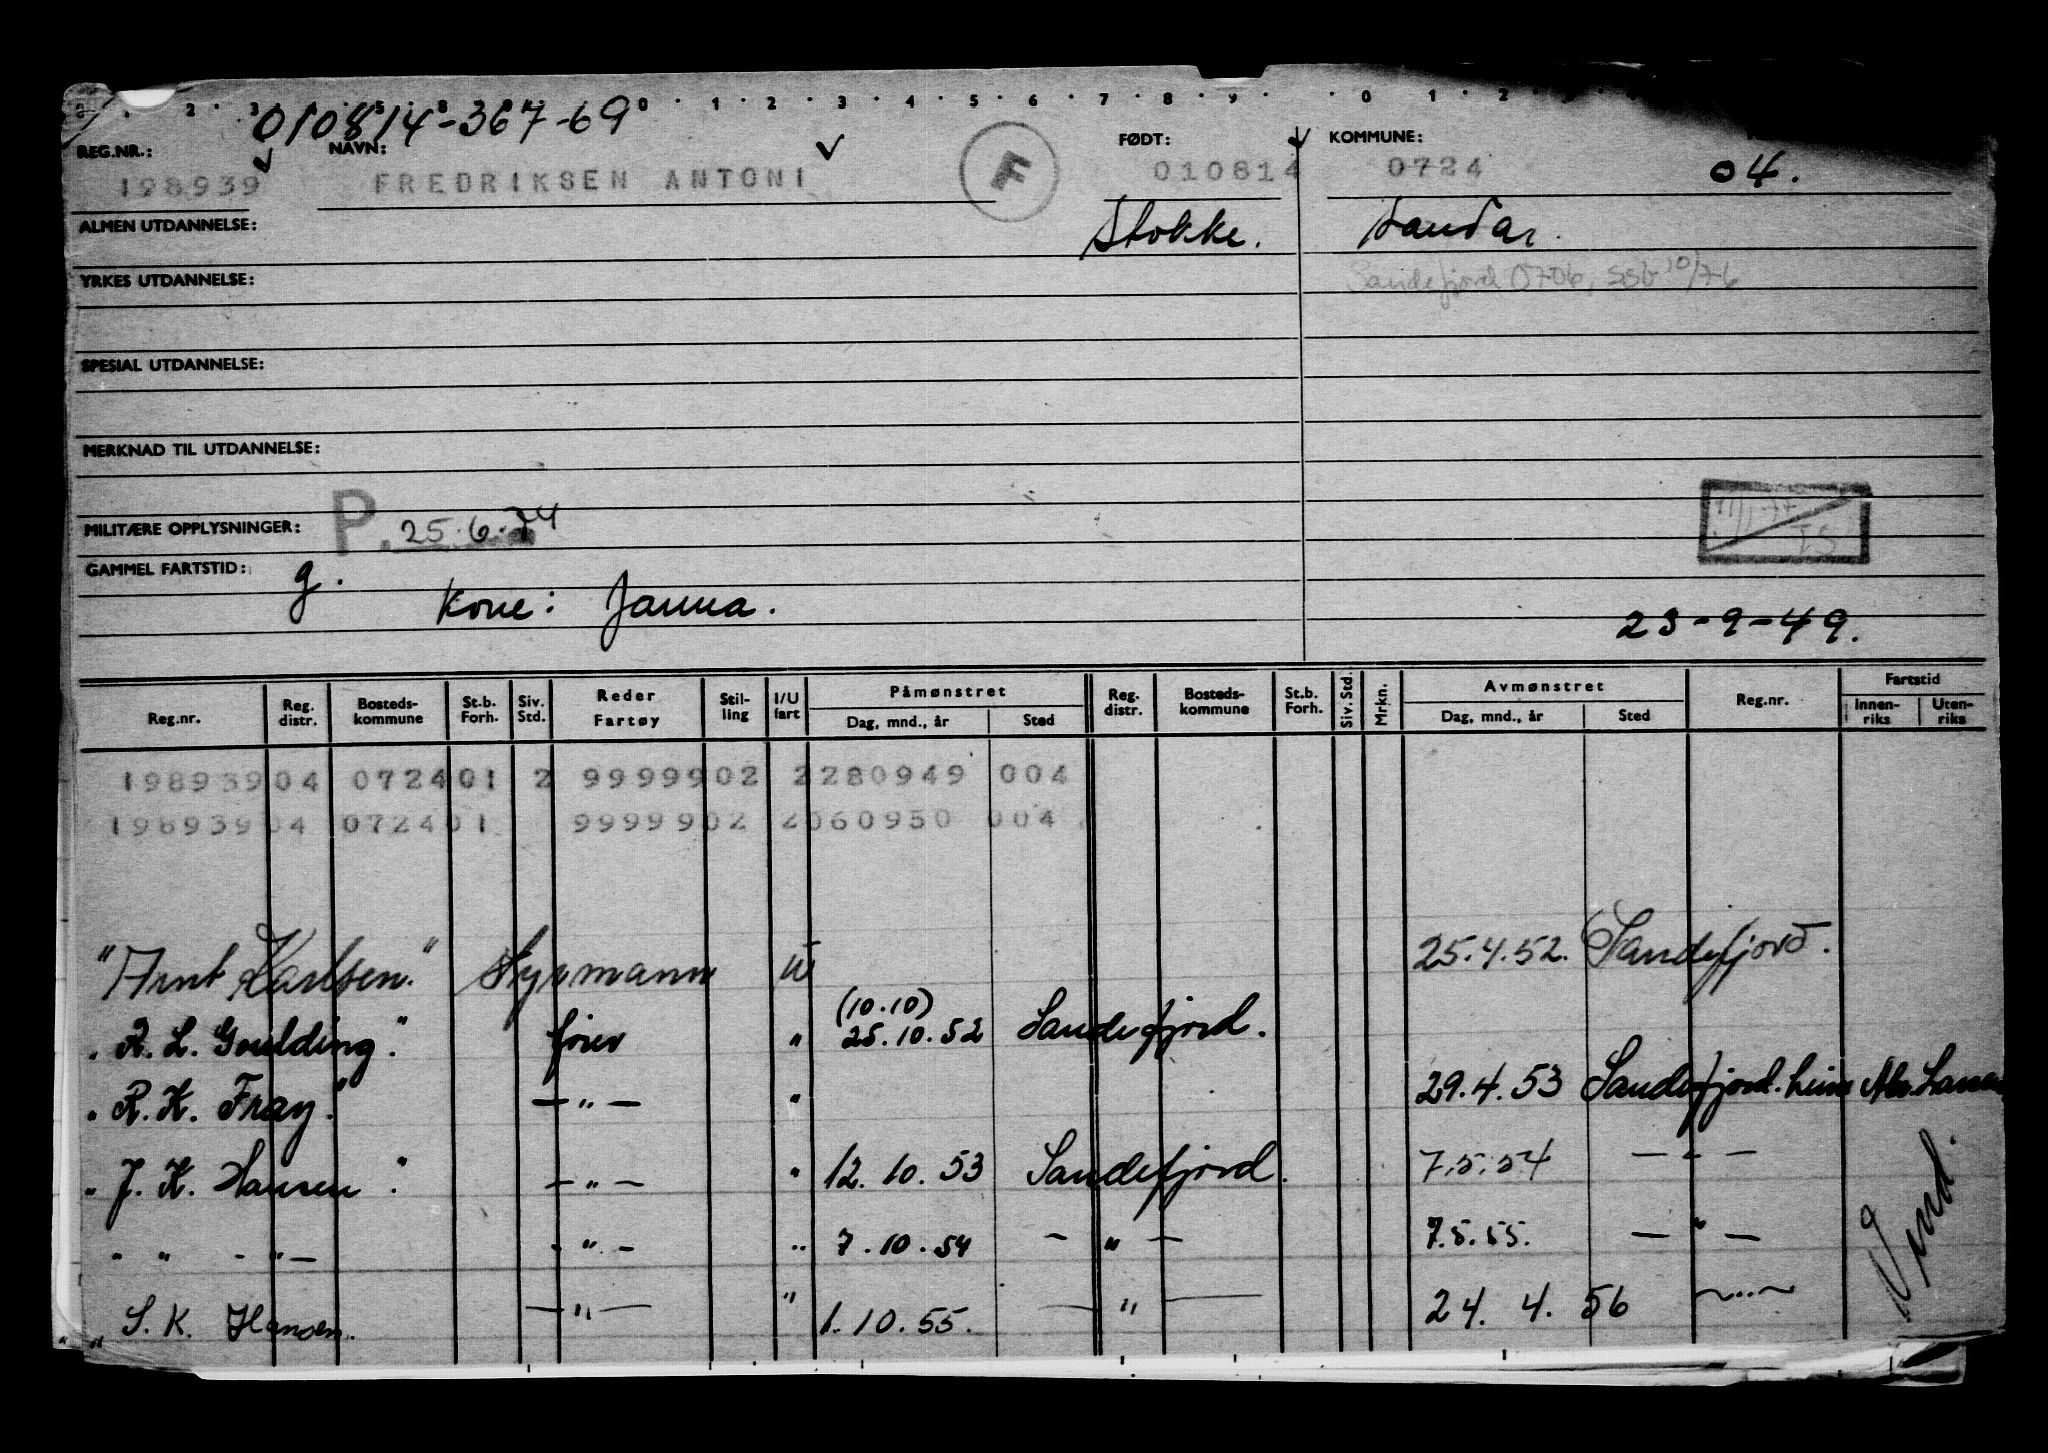 2 . 3 . 5 . 8 . 0 . 1 . 2 . 3 . 4 . 5 . 6 . 7 . 8 . 9 . 0 . 1 . 2
010814-367-69
REG.NR.: NAVN: FØDT: KOMMUNE:
198939 FREDRIKSEN ANTONI F 010814 0724 04.
ALMEN UTDANNELSE: Stokke. Sandar.
YRKES UTDANNELSE: Sandefjord 0706, 10/76
SPESIAL UTDANNELSE:
MERKNAD TIL UTDANNELSE:
MILITÆRE OPPLYSNINGER: P. 25.6.74
GAMMEL FARTSTID: g.
Kone: Janna. 23-9-49.
Reg.nr. Reg. distr. Bosteds-kommune St.b. Forh. Siv. Std. Reder Fartøy Stil-ling I/U fart Påmønstret Dag, mnd., år Sted Reg. distr. Bosteds-kommune St.b. Forh. Siv. Std. Mrkn. Avmønstret Dag, mnd., år Sted Reg.nr. Fartstid Innen-riks Uten-riks
198939 04 0724 01 2 99999 02 2 280949 004
198939 04 0724 01 99999 02 2 060950 004
"Arnt Karlsen." Styrmann U 25.4.52. Sandefjord.
(10.10)
" R. L. Goulding." fører " 25.10.52 Sandefjord.
" R. K. Fray." — " — " 29.4.53 Sandefjord.
" J. K. Hansen." — " — " 12.10.53 Sandefjord. 7.5.54 — " —
" " - " — - " — " 7.10.54 — " — 7.5.55. — " —
" S. K. Hansen. — " — " 1.10.55. — " — 24. 4. 56 — " —